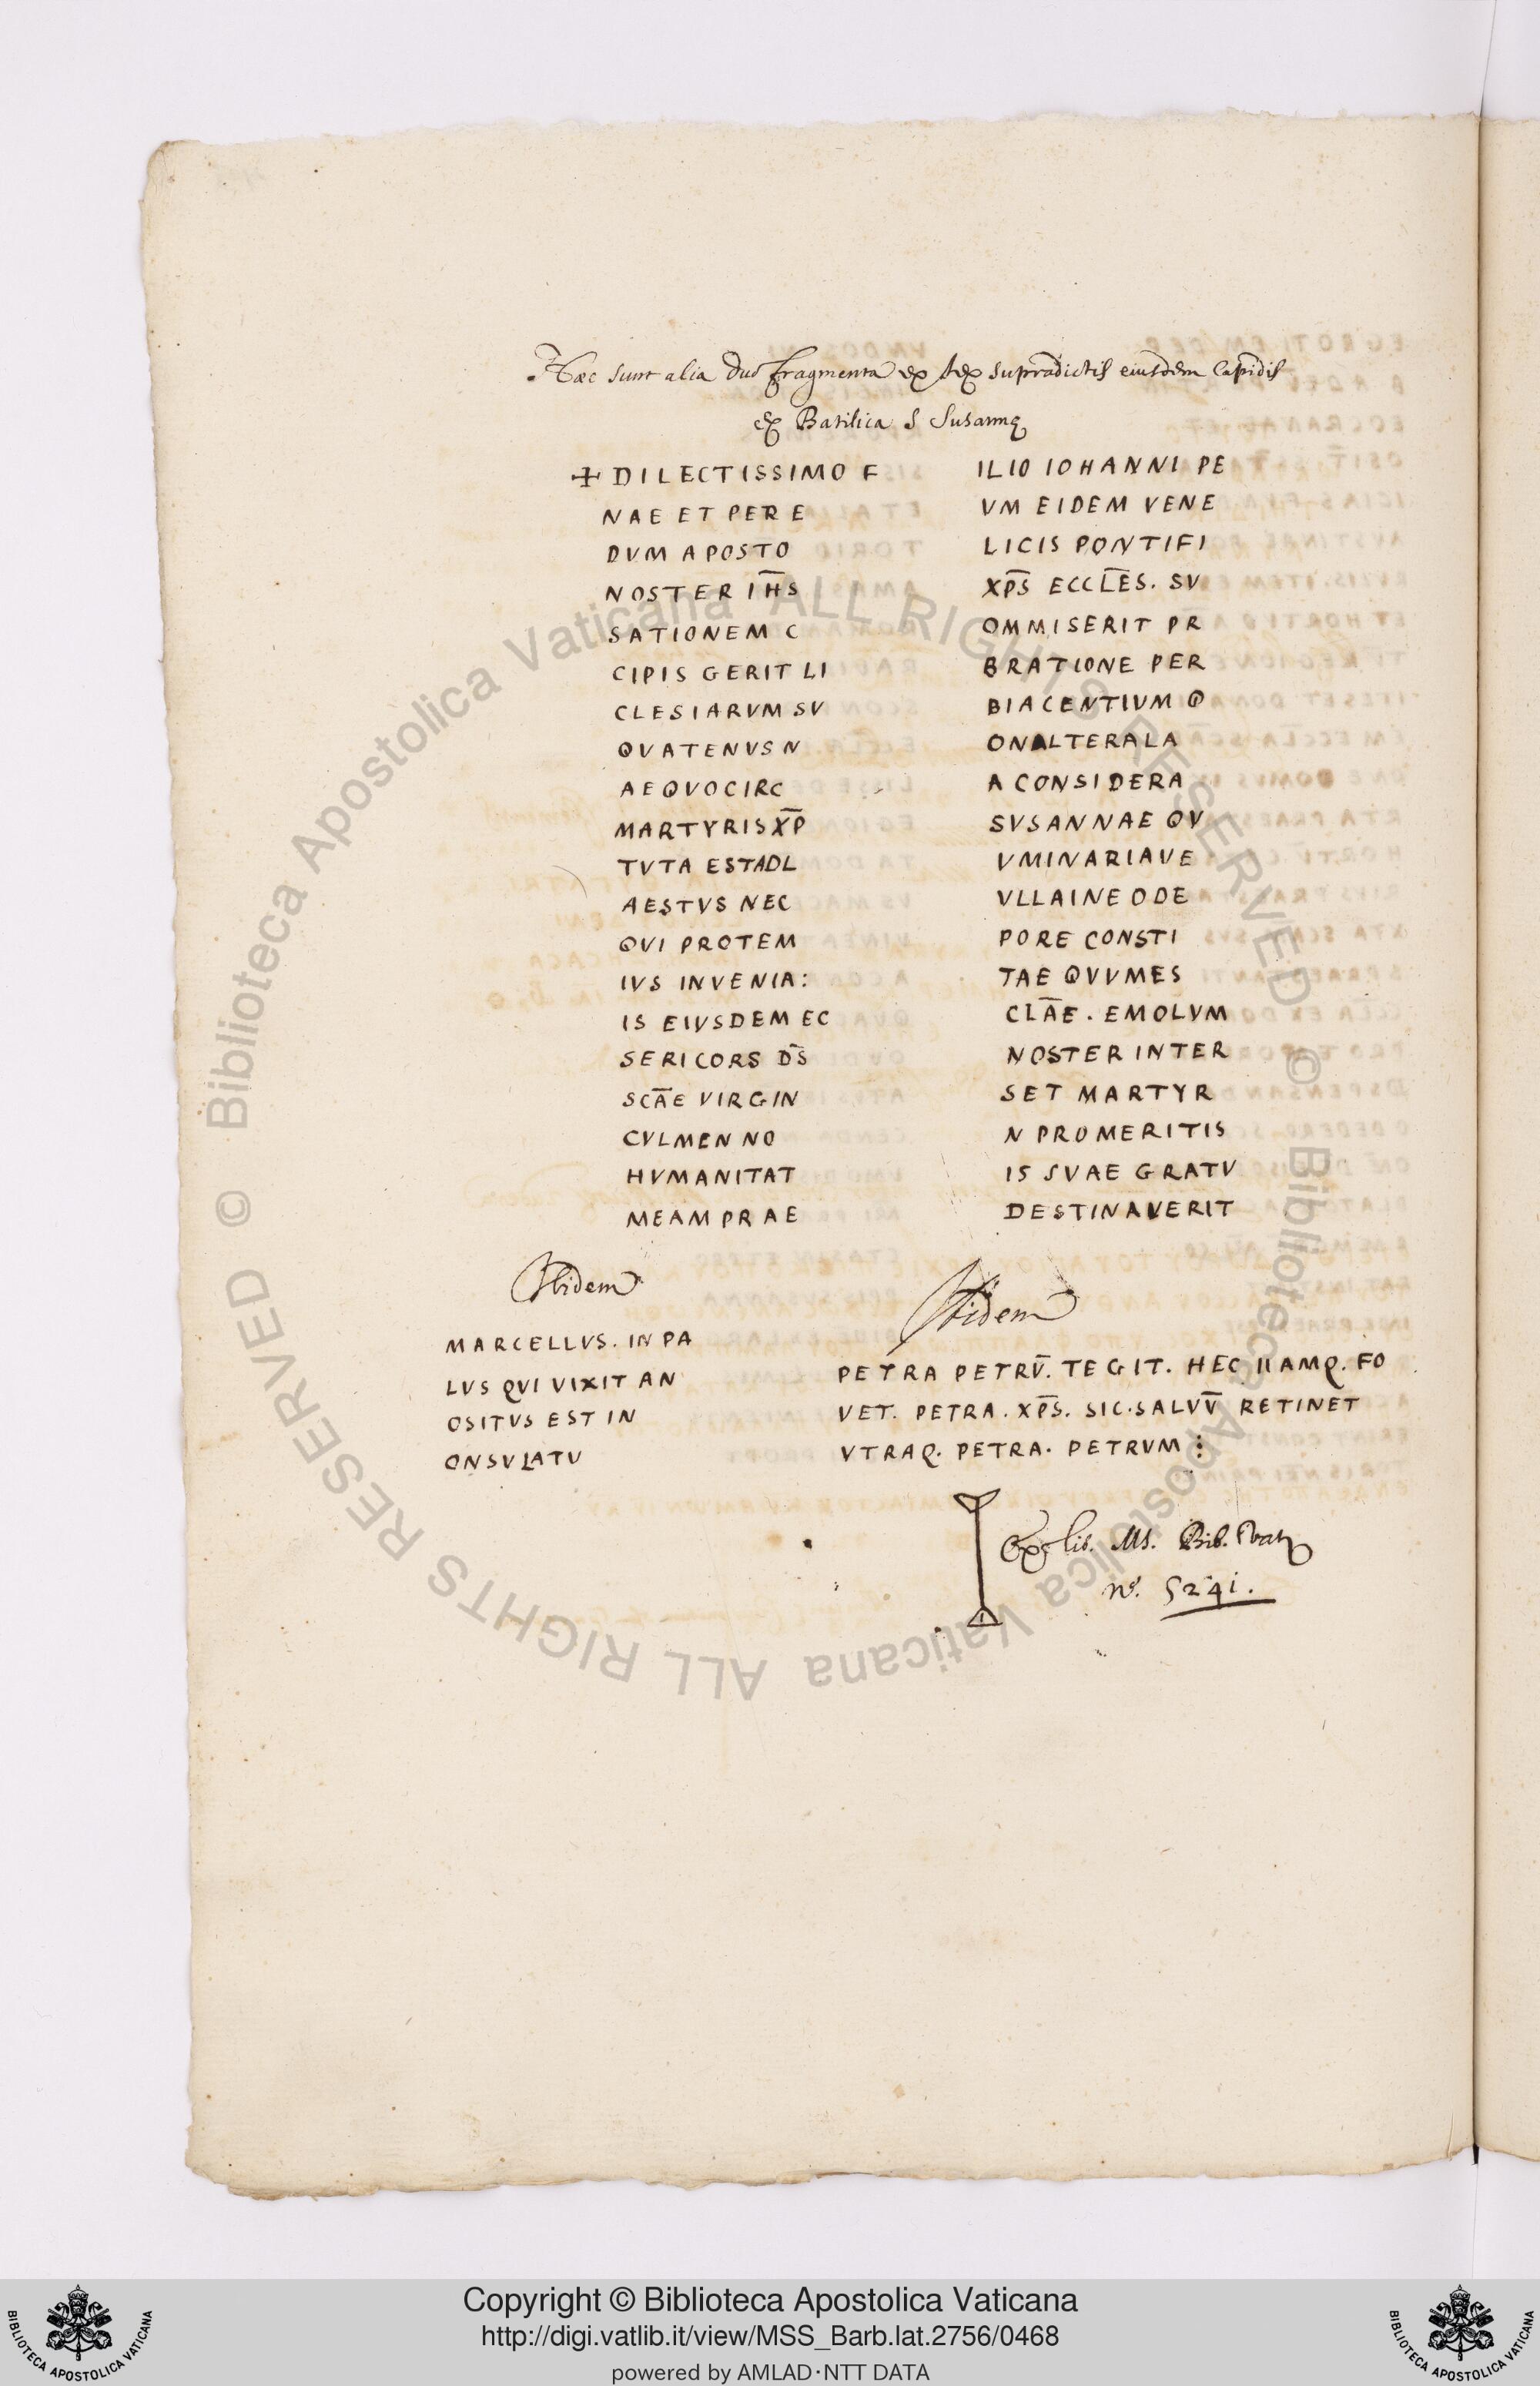 Haec sunt alia duo fragmenta ex sex supradictis eiusdem lapidis
ex Basilica S Susannę
✢ DILECTISSIMO F
NAE ET PER E
DVM APOSTO
NOSTER IH̅S
SATIONEM C
CIPIS GERIT LI
CLESIARVM SV
QVATENVS N
AEQVOCIRC
MARTYRIS X̅P̅
TVTA ESTADL
AESTVS NEC
QVI PROTEM
IVS INVENIA:
IS EIVSDEM EC
SERICORS D̅S
SCA̅E VIRGIN
CVLMEN NO
HVMANITAT
MEAM PRAE
ILIO IOHANNI PE
VM EIDEM VENE
LICIS PONTIFI
XP̅S ECCL̅ES. SV
OMMISERIT PR
BRATIONE PER
BIACENTIVM Q
ONALTERALA
A CONSIDERA
SVSANNAE QV
VMINARIAVE
VLLAINEODE
PORE CONSTI
TAE QVVMES
CLA̅E. EMOLVM
NOSTER INTER
SET MARTYR
N PROMERITIS
IS SVAE GRATV
DESTINAVERIT
Ibidem
MARCELLVS. IN PA
LVS QVI VIXIT AN
OSITVS EST IN
ONSVLATV
Ibidem
PETRA PETRV̅. TEGIT. HEC IIAMQ. FO
VET. PETRA. XP̅S. SIC. SALVV̅ RETINET
VTRAQ. PETRA. PETRVM ⋮
Ex lib. Ms. Bib. Vat.
n.º 5241.
Biblioteca Apostolica Vaticana ALL RIGHTS RESERVED ©
Biblioteca Apostolica Vaticana ALL RIGHTS RESERVED ©
BIBLIOTECA APOSTOLICA VATICANA
Copyright © Biblioteca Apostolica Vaticana
http://digi.vatlib.it/view/MSS_Barb.lat.2756/0468
powered by AMLAD·NTT DATA
BIBLIOTECA APOSTOLICA VATICANA